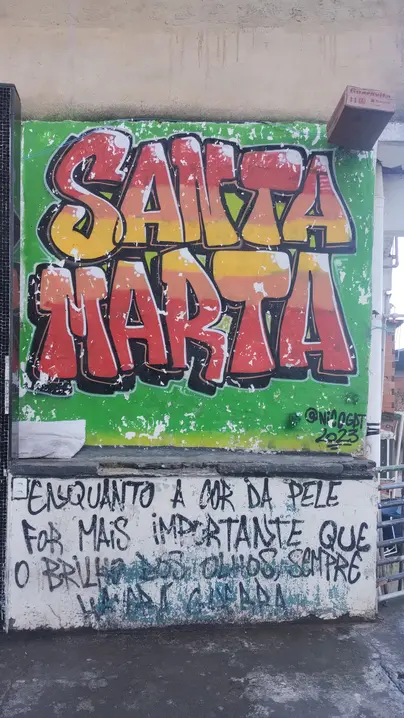 SANTA
MARTA
2023
ENQUANTO A COR DA PELE
FOR MAIS IMPORTANTE QUE
O BRILHO DOS OLHOS, SEMPRE
HAVERÁ GUERRA